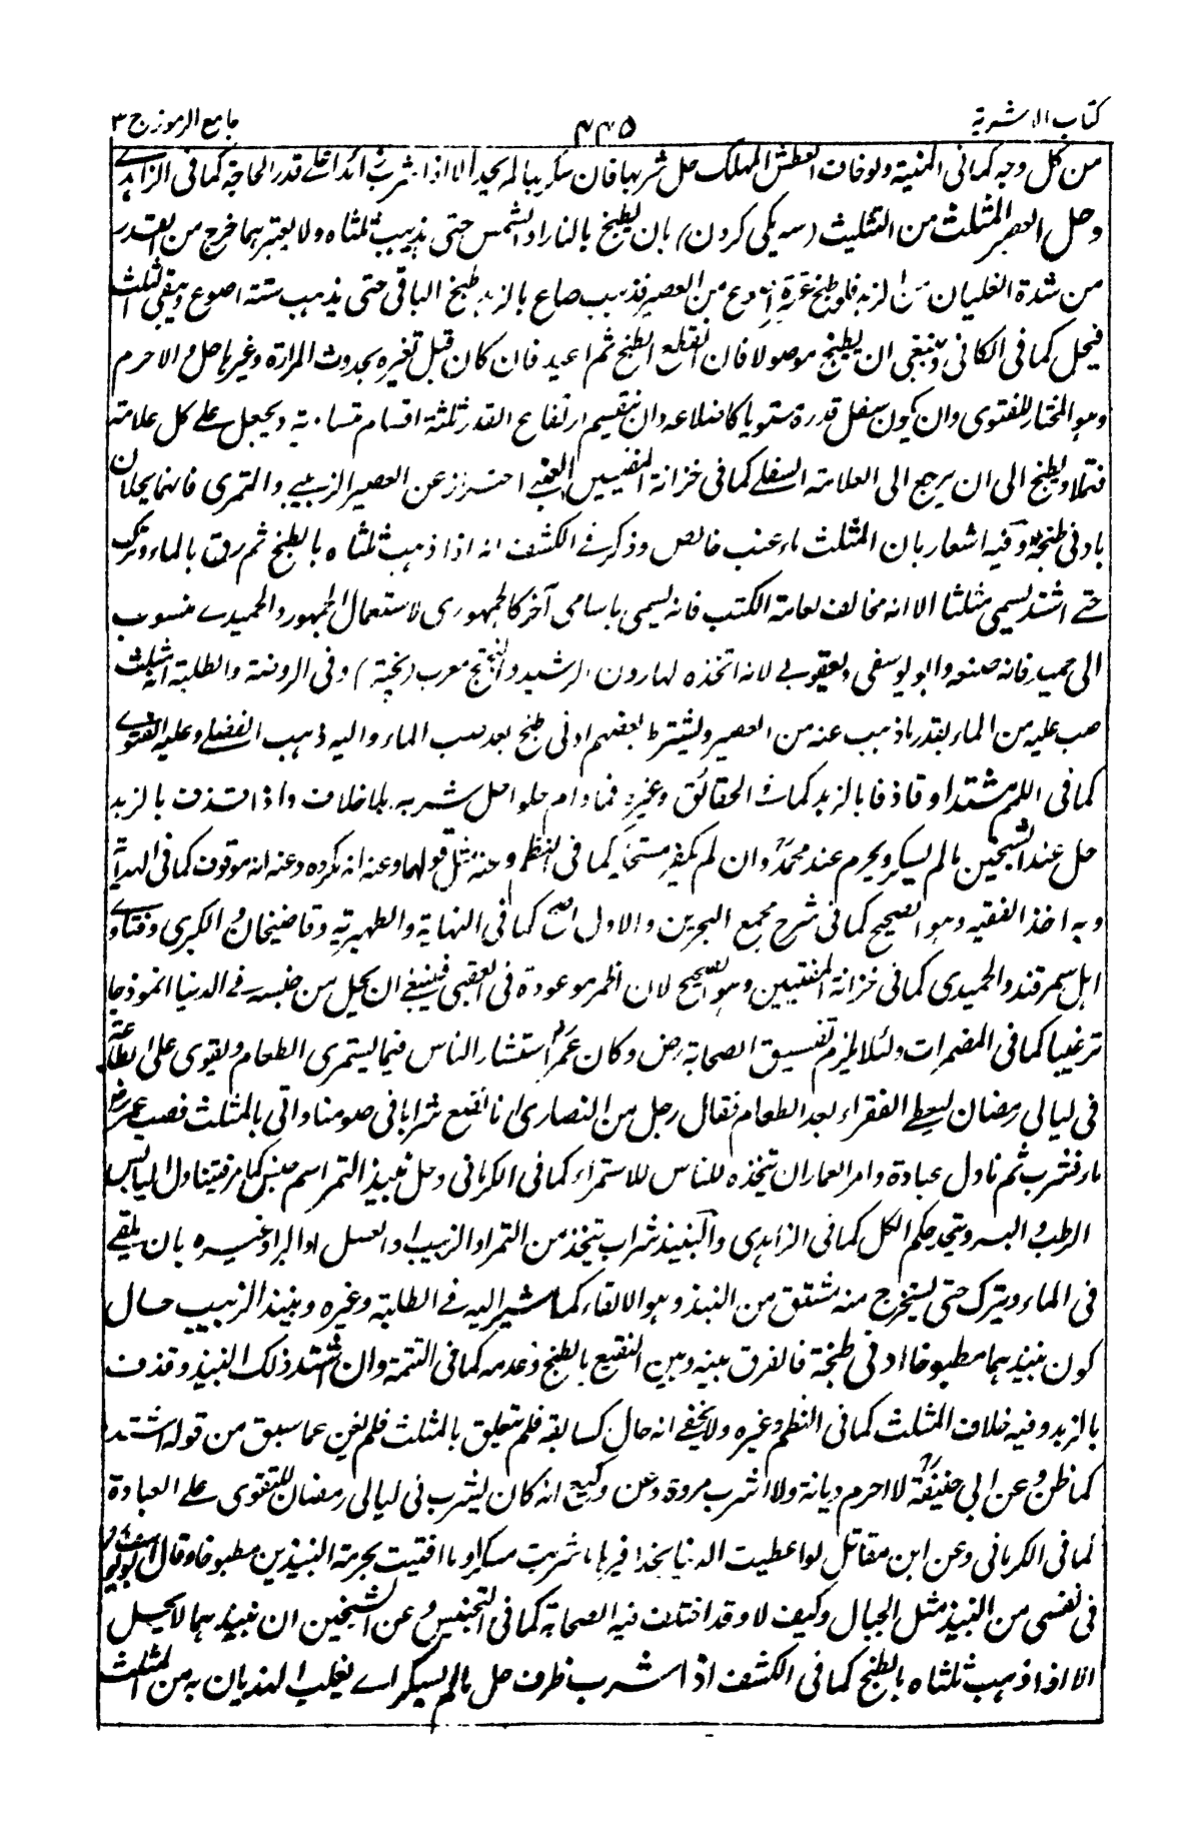 كتاب الاشربة ٤٤٥ جامع الرموز ج ٣
من كل وجه كما فى المنية ولو خاف العطش المهلك حل شربها فان سكر بها لم يحد الا اذا شرب زائدا على قدر الحاجة كما فى الزاهدى
وحل العصير المثلث من التثليث (سه يكى كردن) بان يطبخ بالنار او الشمس حتى يذهب ثلثاه ولا يعتبر بما خرج من القدر
من شدة الغليان من الزبد فلو طبخ عشرة اصوع من العصير فذهب صاع بالزبد طبخ الباقى حتى يذهب ستة اصوع ويبقى الثلث
فيحل كما فى الكافى وينبغى ان يطبخ موصولا فان انقطع الطبخ ثم اعيد فان كان قبل تغيره بحدوث المرارة وغيرها حل والا حرم
وهو المختار للفتوى وان يكون سفل قدره مستويا كاضلاعه وان يقسم ارتفاع القدر ثلثة اقسام متساوية ويجعل على كل علامة
فتملا ويطبخ الى ان يرجع الى العلامة السفلى كما فى خزانة المفتيين احترز عن العصير الزبيبى والتمرى فانهما يحلان
بادنى طبخة وفيه اشعار بان المثلث ماء عنب خالص وذكر فى الكشف انه اذا ذهب ثلثاه بالطبخ ثم رقق بالماء وترك
حتى اشتد يسمى مثلثا الا انه مخالف لعامة الكتب فانه يسمى باسامى آخر كالجمهورى لاستعمال الجمهور والحميدى منسوب
الى حميد فانه صنعه وابو يوسفى ويعقوبى لانه اتخذه لهارون الرشيد والبختج معرب (پخته) وفى الروضة والطلبة انه مثلث
صب عليه من الماء بقدر ما ذهب عنه من العصير ويشترط بعضهم ادنى طبخ بعد صب الماء واليه ذهب الفضلى وعليه الفتوى
كما فى اللمم مشتدا وقاذفا بالزبد كما فى الحقائق وغيره فما دام حلوا حل شربه بلا خلاف واذا قذف بالزبد
حل عند الشيخين ما لم يسكر ويحرم عند محمد وان لم يكفر مستحله كما فى النظم وعنه مثل قولهما وعنه انه مكروه وعنه انه موقوف كما فى الهداية
وبه اخذ الفقيه وهو الصحيح كما فى شرح مجمع البحرين والاول اصح كما فى النهاية والظهيرية وقاضيخان والكبرى وفتاوى
اهل سمرقند والحميدى كما فى خزانة المفتيين وهو الصحيح لان الخمر موعودة فى العقبى فينبغى ان يحل من جنسه فى الدنيا انموذجا
ترغيبا كما فى المضمرات ولئلا يلزم تفسيق الصحابة رض وكان عمر استشار الناس فيما يستمرى الطعام ويقوى على الطاعة
فى ليالى رمضان ليعطى الفقراء بعد الطعام فقال رجل من النصارى انا نصنع شرابا فى صومنا واتى بالمثلث فصب عمر رض
ماء فشرب ثم ناول عبادة وامر العمار ان يتخذه للناس للاستمراء كما فى الكرمانى وحل نبيذ التمر اسم جنس كما مر فيتناول اليابس
الرطب والبسر ويتحد حكم الكل كما فى الزاهدى والنبيذ شراب يتخذ من التمر او الزبيب او العسل او البر او غيره بان يلقى
فى الماء ويترك حتى يستخرج منه مشتق من النبذ وهو الالقاء كما اشير اليه فى الطلبة وغيره ونبيذ الزبيب حال
كون نبيذهما مطبوخا ادنى طبخة فالفرق بينه وبين النقيع بالطبخ وعدمه كما فى التتمة وان اشتد ذلك النبيذ وقذف
بالزبد وفيه خلاف المثلث كما فى النظم وغيره ولا يخفى انه حال كسابقه فلم يتعلق بالمثلث فلم يغن عما سبق من قوله اشتد
كما ظن وعن ابى حنيفة لا احرم ديانة ولا اشرب مروة وعن وكيع انه كان يشرب فى ليالى رمضان للتقوى على العبادة
كما فى الكرمانى وعن ابن مقاتل لو اعطيت الدنيا بحذافيرها ما شربت مسكرا وما افتيت بحرمة النبيذين مطبوخا وقال ابو يوسف
فى نفسى من النبيذ مثل الجبال وكيف لا وقد اختلف فيه الصحابة كما فى التجنيس وعن الشيخين ان نبيذهما لا يحل
الا اذا ذهب ثلثاه بالطبخ كما فى الكشف اذا شرب ظرف حل ما لم يسكر اى يغلب الهذيان به من المثلث